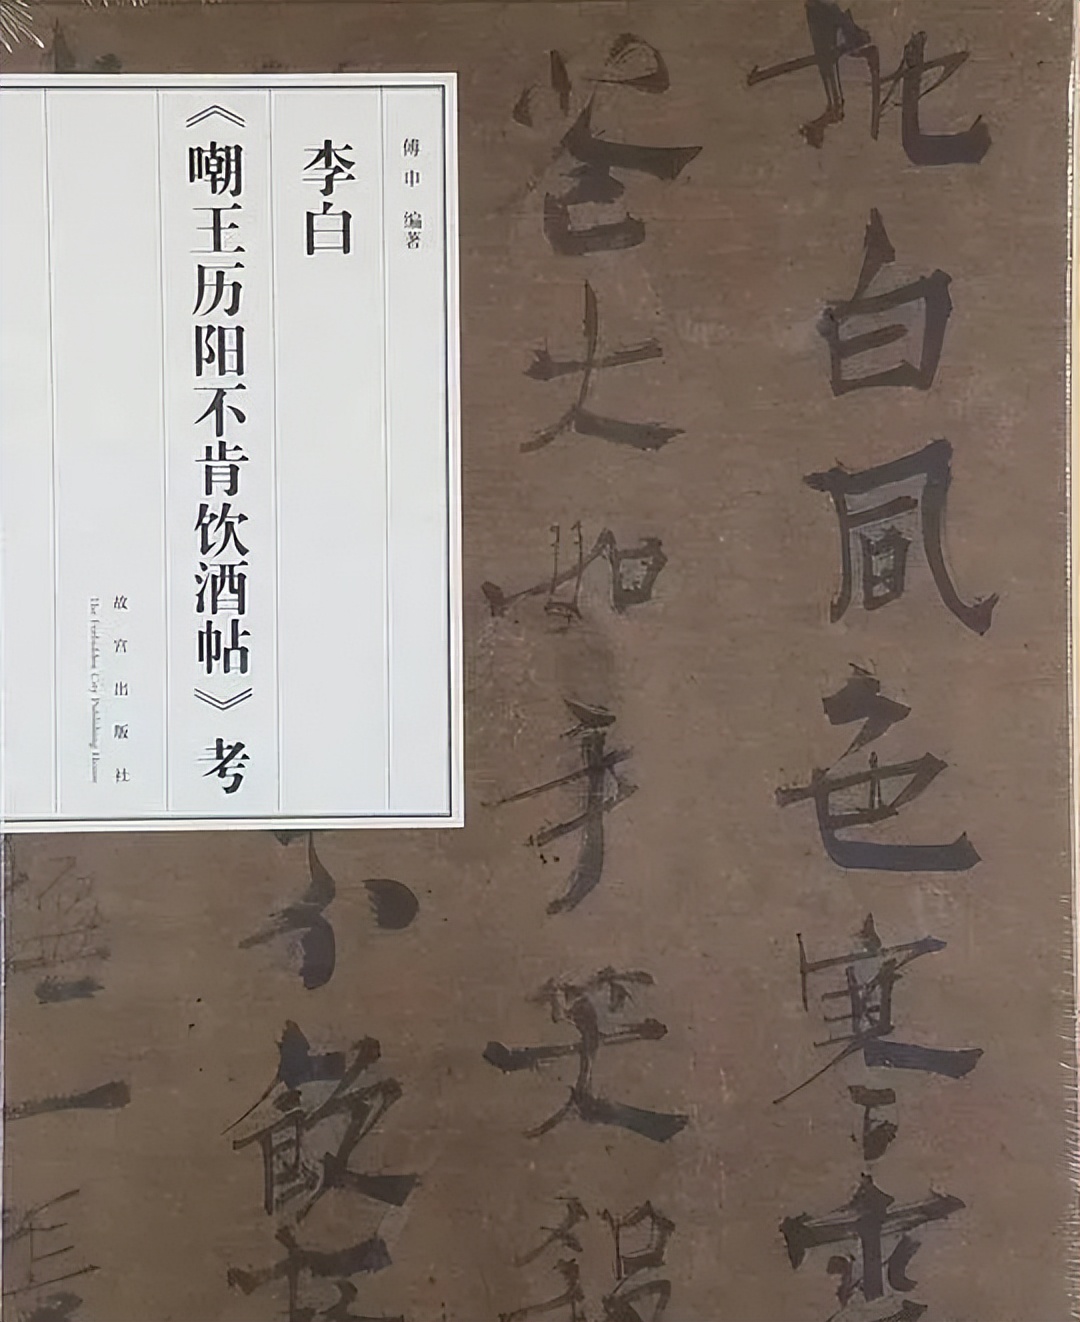 地白風色寒雪
花大如手笑殺
不飲
一張
傅申 编著
李白
《嘲王历阳不肯饮酒帖》考
故宫出版社
The Forbidden City Publishing House